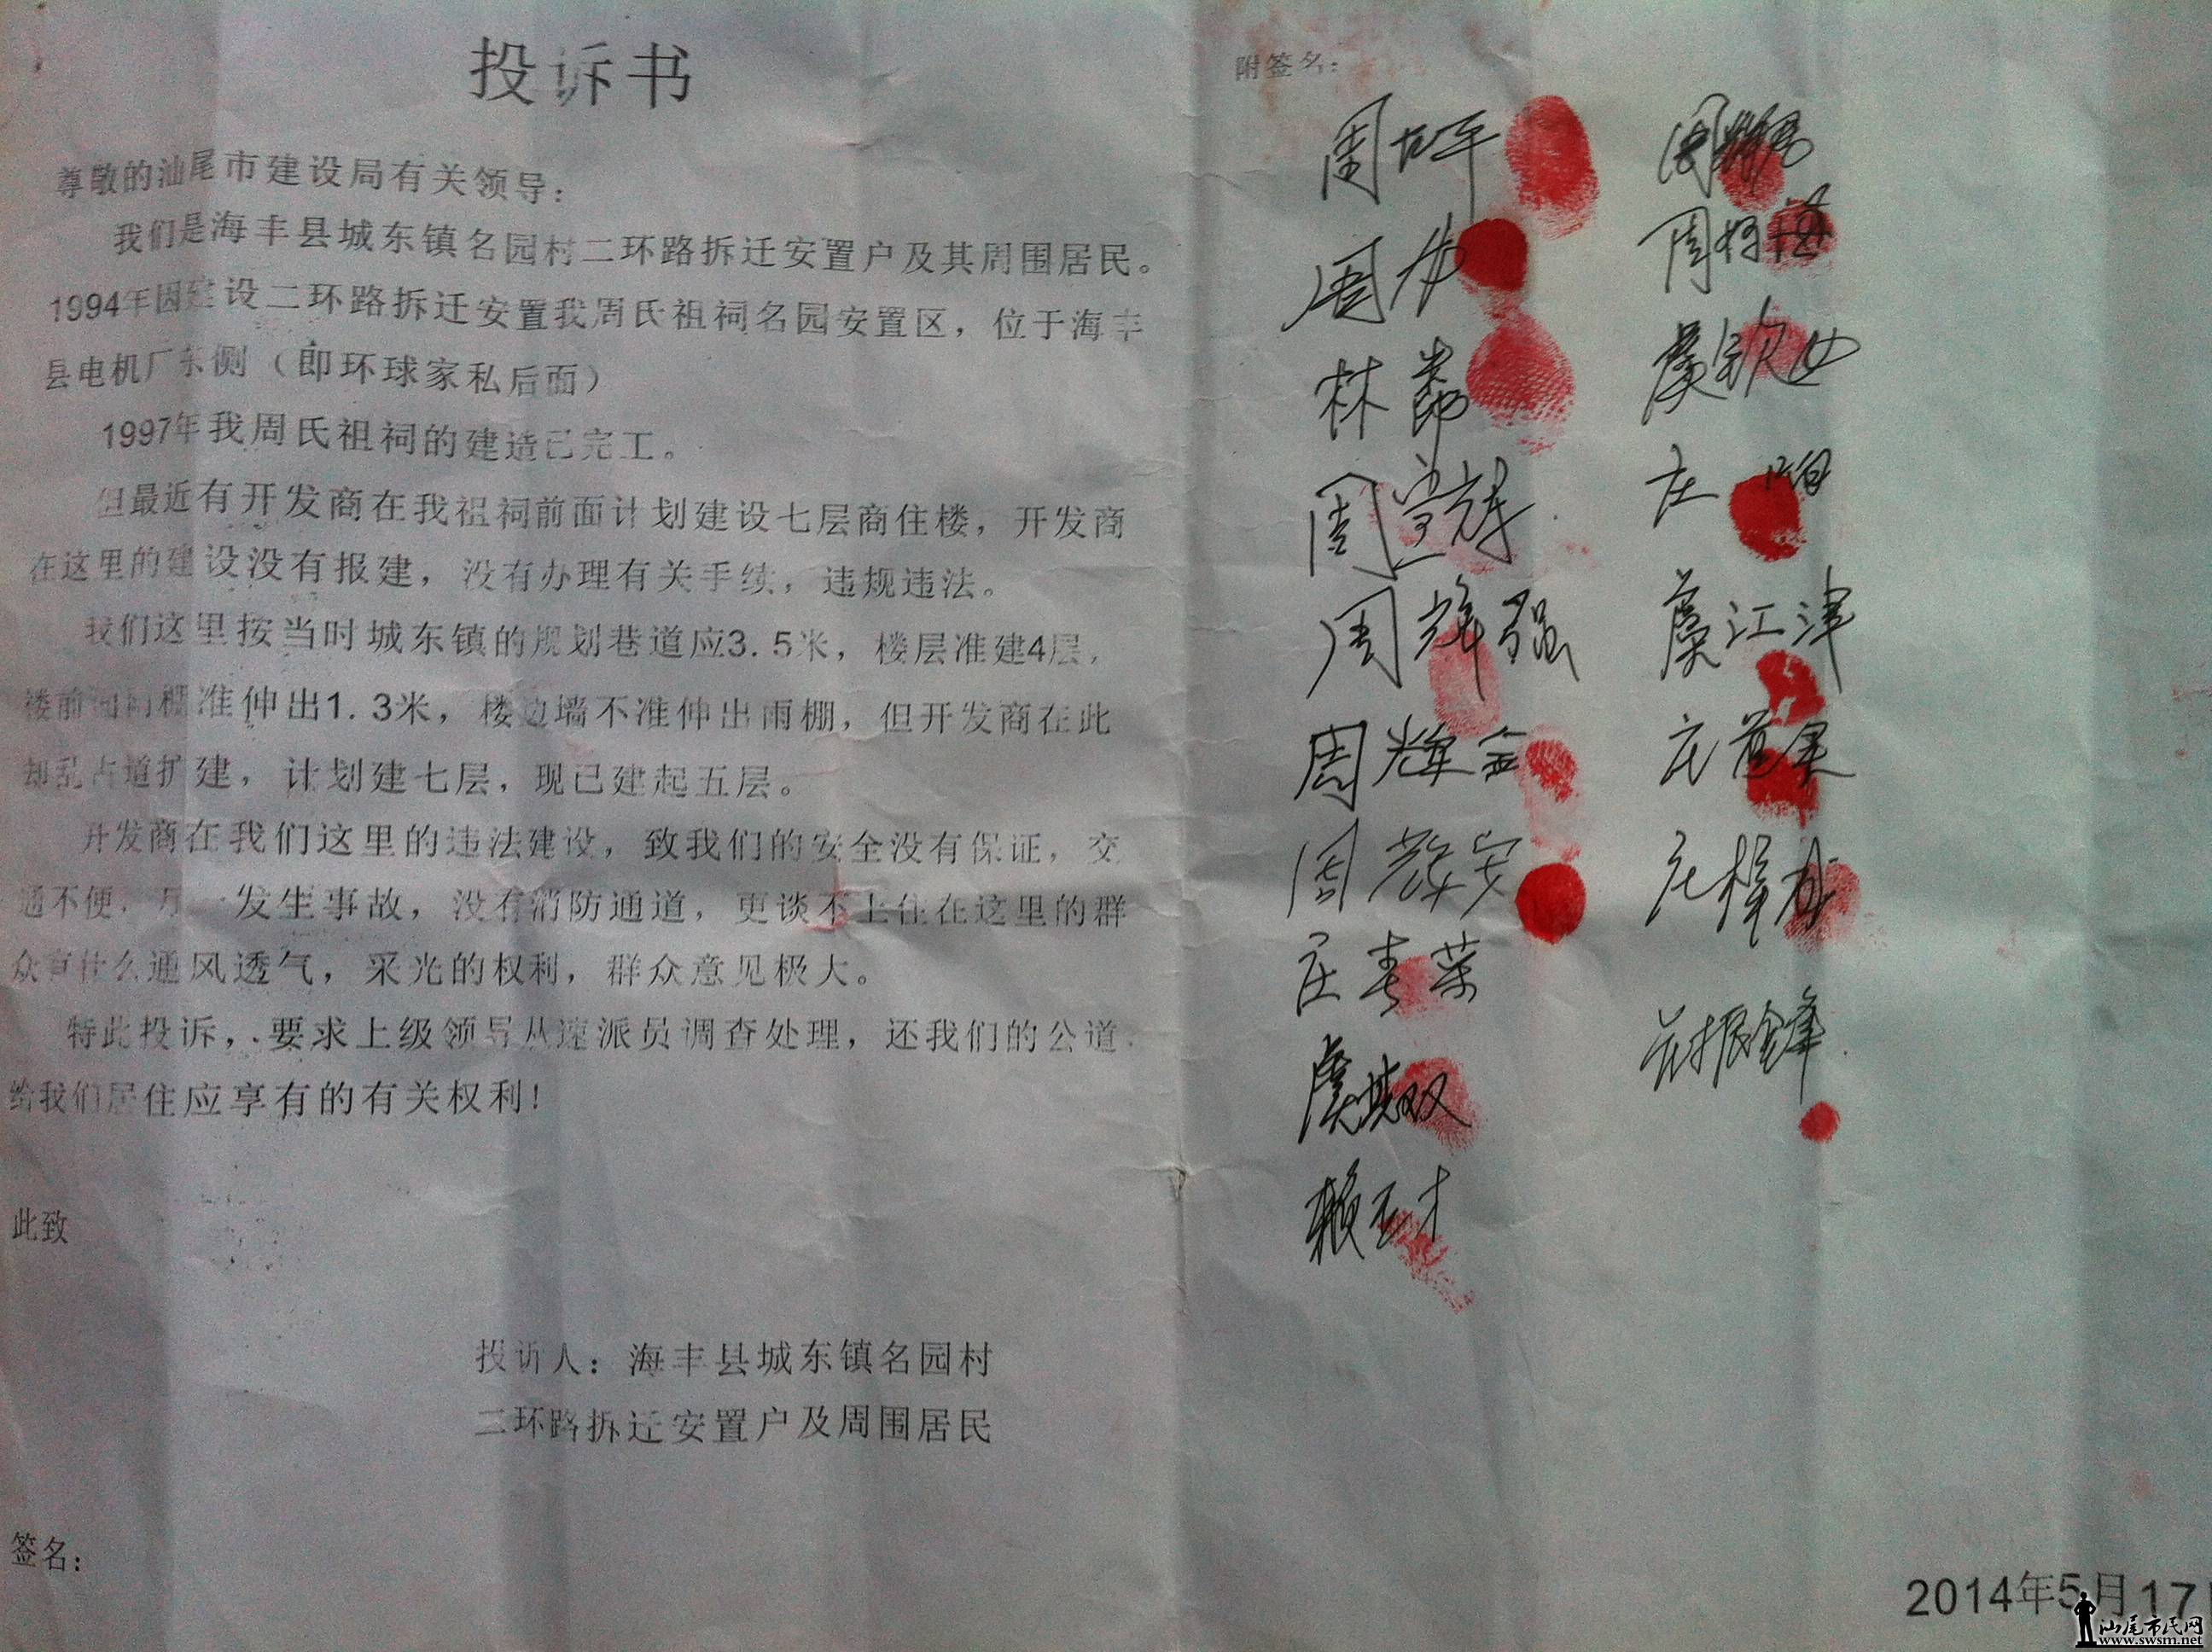 投诉书
尊敬的汕尾市建设局有关领导：
我们是海丰县城东镇名园村二环路拆迁安置户及其周围居民。
1994年因建设二环路拆迁安置我周氏祖祠名园安置区，位于海丰
县电机厂东侧（即环球家私后面）
1997年我周氏祖祠的建造已完工。
但最近有开发商在我祖祠前面计划建设七层商住楼，开发商
在这里的建设没有报建，没有办理有关手续，违规违法。
我们这里按当时城东镇的规划巷道应3.5米，楼层准建4层，
楼前面雨棚准伸出1.3米，楼边墙不准伸出雨棚，但开发商在此
却乱占道扩建，计划建七层，现已建起五层。
开发商在我们这里的违法建设，致我们的安全没有保证，交
通不便，万一发生事故，没有消防通道，更谈不上住在这里的群
众有什么通风透气，采光的权利，群众意见极大。
特此投诉，.要求上级领导从速派员调查处理，还我们的公道，
给我们居住应享有的有关权利！
此致
投诉人：海丰县城东镇名园村
二环路拆迁安置户及周围居民
签名：
附签名：
周
周
林
周
周辉强
周辉金
周 安
庄春荣
虞 双
赖 才
周
周
虞钦
庄
虞江津
庄
庄
庄振锋
2014年5月17
汕尾市民网
www.swsm.net